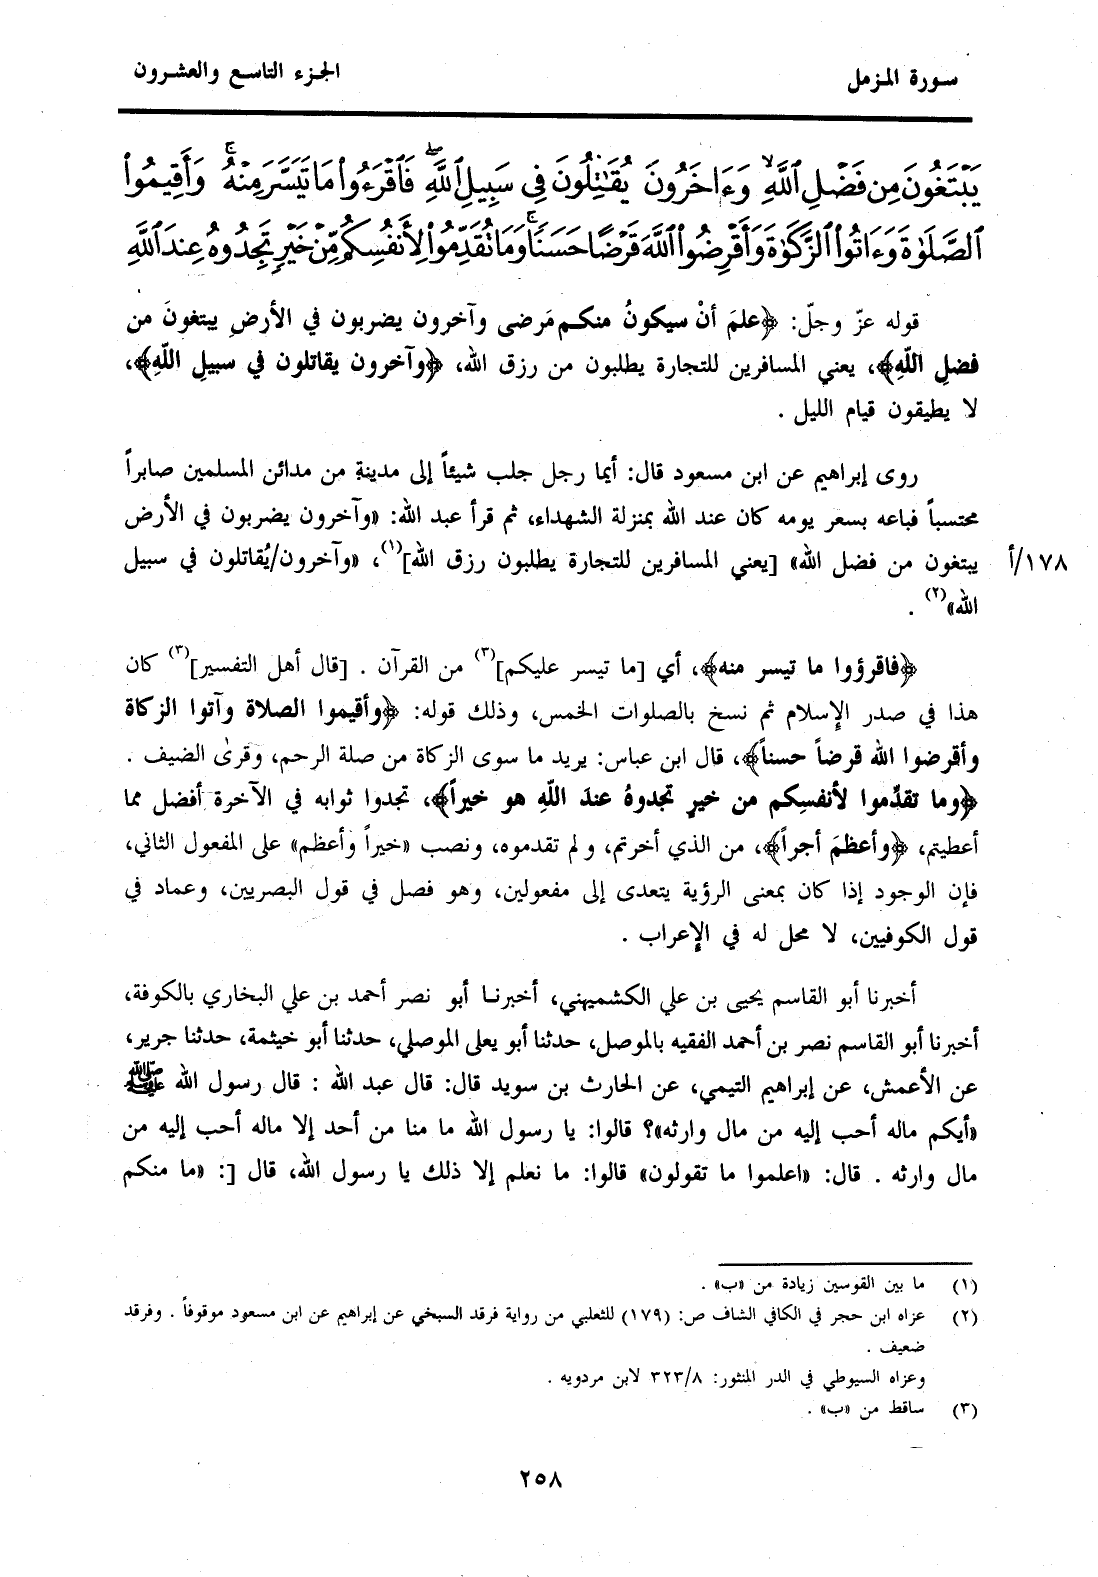 سورة المزمل
الجزء التاسع والعشرون
يَبْتَغُونَ مِن فَضْلِ ٱللَّهِ ۙ وَءَاخَرُونَ يُقَٰتِلُونَ فِى سَبِيلِ ٱللَّهِ ۖ فَٱقْرَءُوا۟ مَا تَيَسَّرَ مِنْهُ ۚ وَأَقِيمُوا۟
ٱلصَّلَوٰةَ وَءَاتُوا۟ ٱلزَّكَوٰةَ وَأَقْرِضُوا۟ ٱللَّهَ قَرْضًا حَسَنًا ۚ وَمَا تُقَدِّمُوا۟ لِأَنفُسِكُم مِّنْ خَيْرٍ تَجِدُوهُ عِندَ ٱللَّهِ
قوله عزّ وجلّ: ﴿علمَ أنْ سيكونُ منكم مَرضى وآخرون يضربون في الأرضِ يبتغونَ من
فضلِ اللّهِ﴾، يعني المسافرين للتجارة يطلبون من رزق الله، ﴿وآخرون يقاتلون في سبيلِ اللّهِ﴾،
لا يطيقون قيام الليل .
روى إبراهيم عن ابن مسعود قال: أيما رجل جلب شيئاً إلى مدينةٍ من مدائن المسلمين صابراً
محتسباً فباعه بسعر يومه كان عند الله بمنزلة الشهداء، ثم قرأ عبد الله: «وآخرون يضربون في الأرض
يبتغون من فضل الله» [يعني المسافرين للتجارة يطلبون رزق الله](١)، «وآخرون/يُقاتلون في سبيل
١٧٨/أ
الله»(٢) .
﴿فاقرؤوا ما تيسر منه﴾، أي [ما تيسر عليكم](٣) من القرآن . [قال أهل التفسير](٣) كان
هذا في صدر الإسلام ثم نسخ بالصلوات الخمس، وذلك قوله: ﴿وأقيموا الصلاة وآتوا الزكاة
وأقرضوا الله قرضاً حسناً﴾، قال ابن عباس: يريد ما سوى الزكاة من صلة الرحم، وقرىٰ الضيف .
﴿وما تقدِّموا لأنفسِكم من خيرٍ تجدوهُ عندَ اللّهِ هو خيراً﴾، تجدوا ثوابه في الآخرة أفضل مما
أعطيتم، ﴿وأعظمَ أجراً﴾، من الذي أخرتم، ولم تقدموه، ونصب «خيراً وأعظم» على المفعول الثاني،
فإن الوجود إذا كان بمعنى الرؤية يتعدى إلى مفعولين، وهو فصل في قول البصريين، وعماد في
قول الكوفيين، لا محل له في الإعراب .
أخبرنا أبو القاسم يحيى بن علي الكشميهني، أخبرنا أبو نصر أحمد بن علي البخاري بالكوفة،
أخبرنا أبو القاسم نصر بن أحمد الفقيه بالموصل، حدثنا أبو يعلى الموصلي، حدثنا أبو خيثمة، حدثنا جرير،
عن الأعمش، عن إبراهيم التيمي، عن الحارث بن سويد قال: قال عبد الله : قال رسول الله ﷺ
«أيكم ماله أحب إليه من مال وارثه»؟ قالوا: يا رسول الله ما منا من أحد إلا ماله أحب إليه من
مال وارثه . قال: «اعلموا ما تقولون» قالوا: ما نعلم إلا ذلك يا رسول الله، قال [: «ما منكم
(١) ما بين القوسين زيادة من «ب» .
(٢) عزاه ابن حجر في الكافي الشاف ص: (١٧٩) للثعلبي من رواية فرقد السبخي عن إبراهيم عن ابن مسعود موقوفاً . وفرقد
ضعيف .
وعزاه السيوطي في الدر المنثور: ٣٢٣/٨ لابن مردويه .
(٣) ساقط من «ب» .
٢٥٨